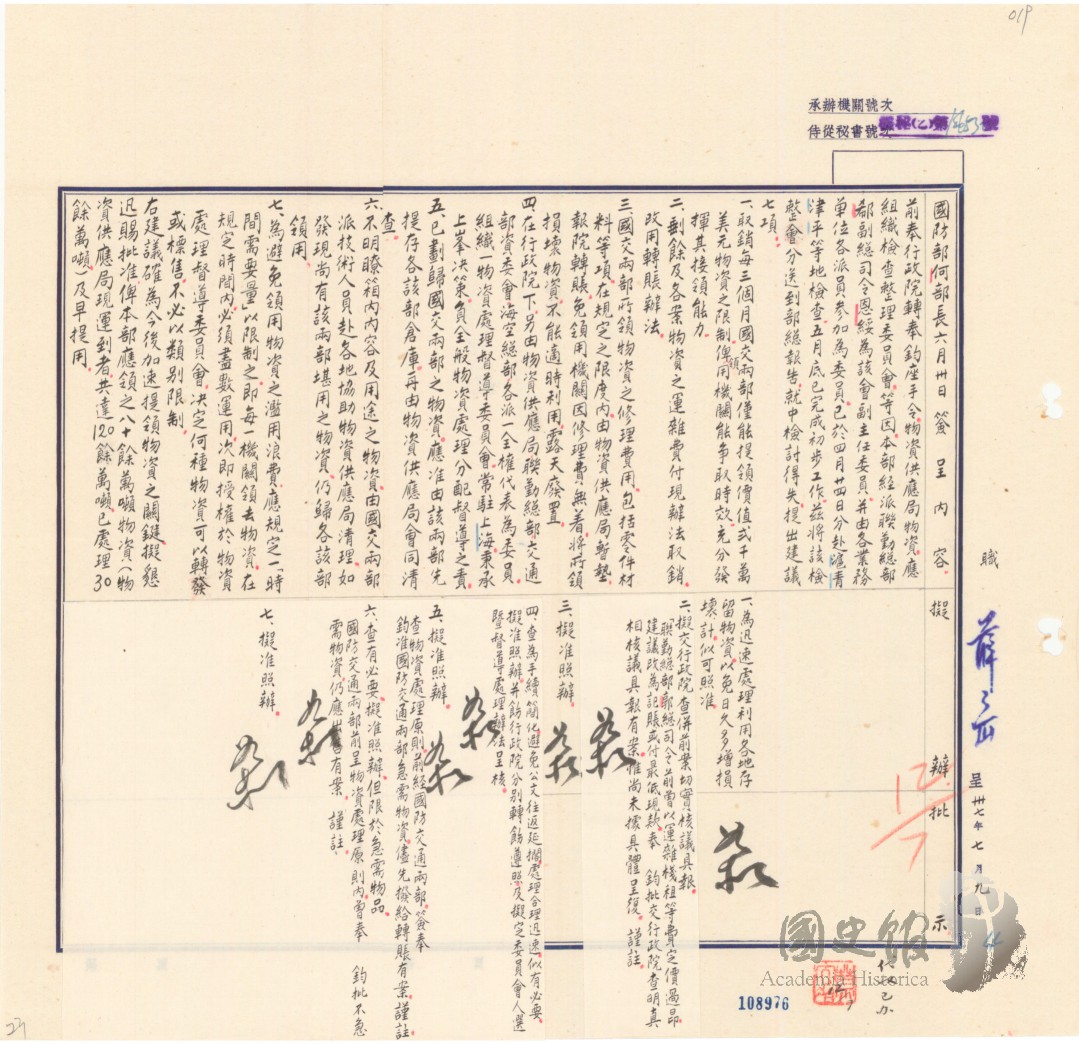 019
次號關機辦承
次號書秘從侍
國防部何部長六月卅日簽呈內容
前奉行政院轉奉 鈞座手令物資供應局物資應
組織檢查整理委員會等因本部經派聯勤總部
郗副總司令恩綏為該會副主任委員并由各業務
單位各派員參加為委員已於四月廿四日分赴滬青
津平等地檢查五月底已完成初步工作茲將該檢
整會分送到部總報告就中檢討得失提出建議
七項
一、取銷每三個月國交兩部僅能提領價值弍千萬
美元物資之限制俾領用機關能爭取時效充分發
揮其接領能力
二、剩餘及各案物資之運雜費付現辦法取銷
改用轉賬辦法
三、國交兩部所領物資之修理費用包括零件材
料等項在規定之限度內由物資供應局暫墊
報院轉賬免領用機關因修理費無着將所領
損壞物資不能適時利用露天廢置
四、在行政院下另由物資供應局聯勤總部交通
部資委會海空總部各派一全權代表為委員
組織一物資處理督導委員會常駐上海秉承
上峯決策負全般物資處理分配督導之責
五、已劃歸國交兩部之物資應准由該兩部先
提存各該部倉庫再由物資供應局會同清
查
六、不明瞭箱內內容及用途之物資由國交兩部
派技術人員赴各地協助物資供應局清理如
發現尚有該兩部堪用之物資仍歸各該部
領用
七、為避免領用物資之濫用浪費應規定一「時
間需要量」以限制之即每一機關領去物資在
規定時間內必須盡數運用次即授權於物資
處理督導委員會決定何種物資可以轉發
或標售不必以類別限制
右建議確為今後加速提領物資之關鍵擬懇
迅賜批准俾本部應領之八十餘萬噸物資(物
資供應局現運到者共達120餘萬噸已處理30
餘萬噸)及早提用
擬辦
一、為迅速處理利用各地存
留物資以免日久多增損
壞計似可照准
二、擬交行政院查併前案切實核議具報
聯勤總部郭總司令前曾以運雜棧租等費定價過昂
建議改為記賬或付最低現款奉 鈞批交行政院查明真
相核議具報有案惟尚未據具體呈復 謹註
三、擬准照辦
四、查為手續簡化避免公文往返延擱處理合理迅速似有必要
擬准照辦并飭行政院分別轉飭遵照及擬定委員會人選
暨督導處理辦法呈核
五、擬准照辦
查物資處理原則前經國防交通兩部簽奉
鈞准國防交通兩部急需物資儘先撥給轉賬有案謹註
六、查有必要擬准照辦但限於急需物品
國防交通兩部前呈物資處理原則內曾奉 鈞批不急
需物資仍應出售有案 謹註
七、擬准照辦
批示
職
呈 卅七年七月九日
國史館
Academia Historica
108976